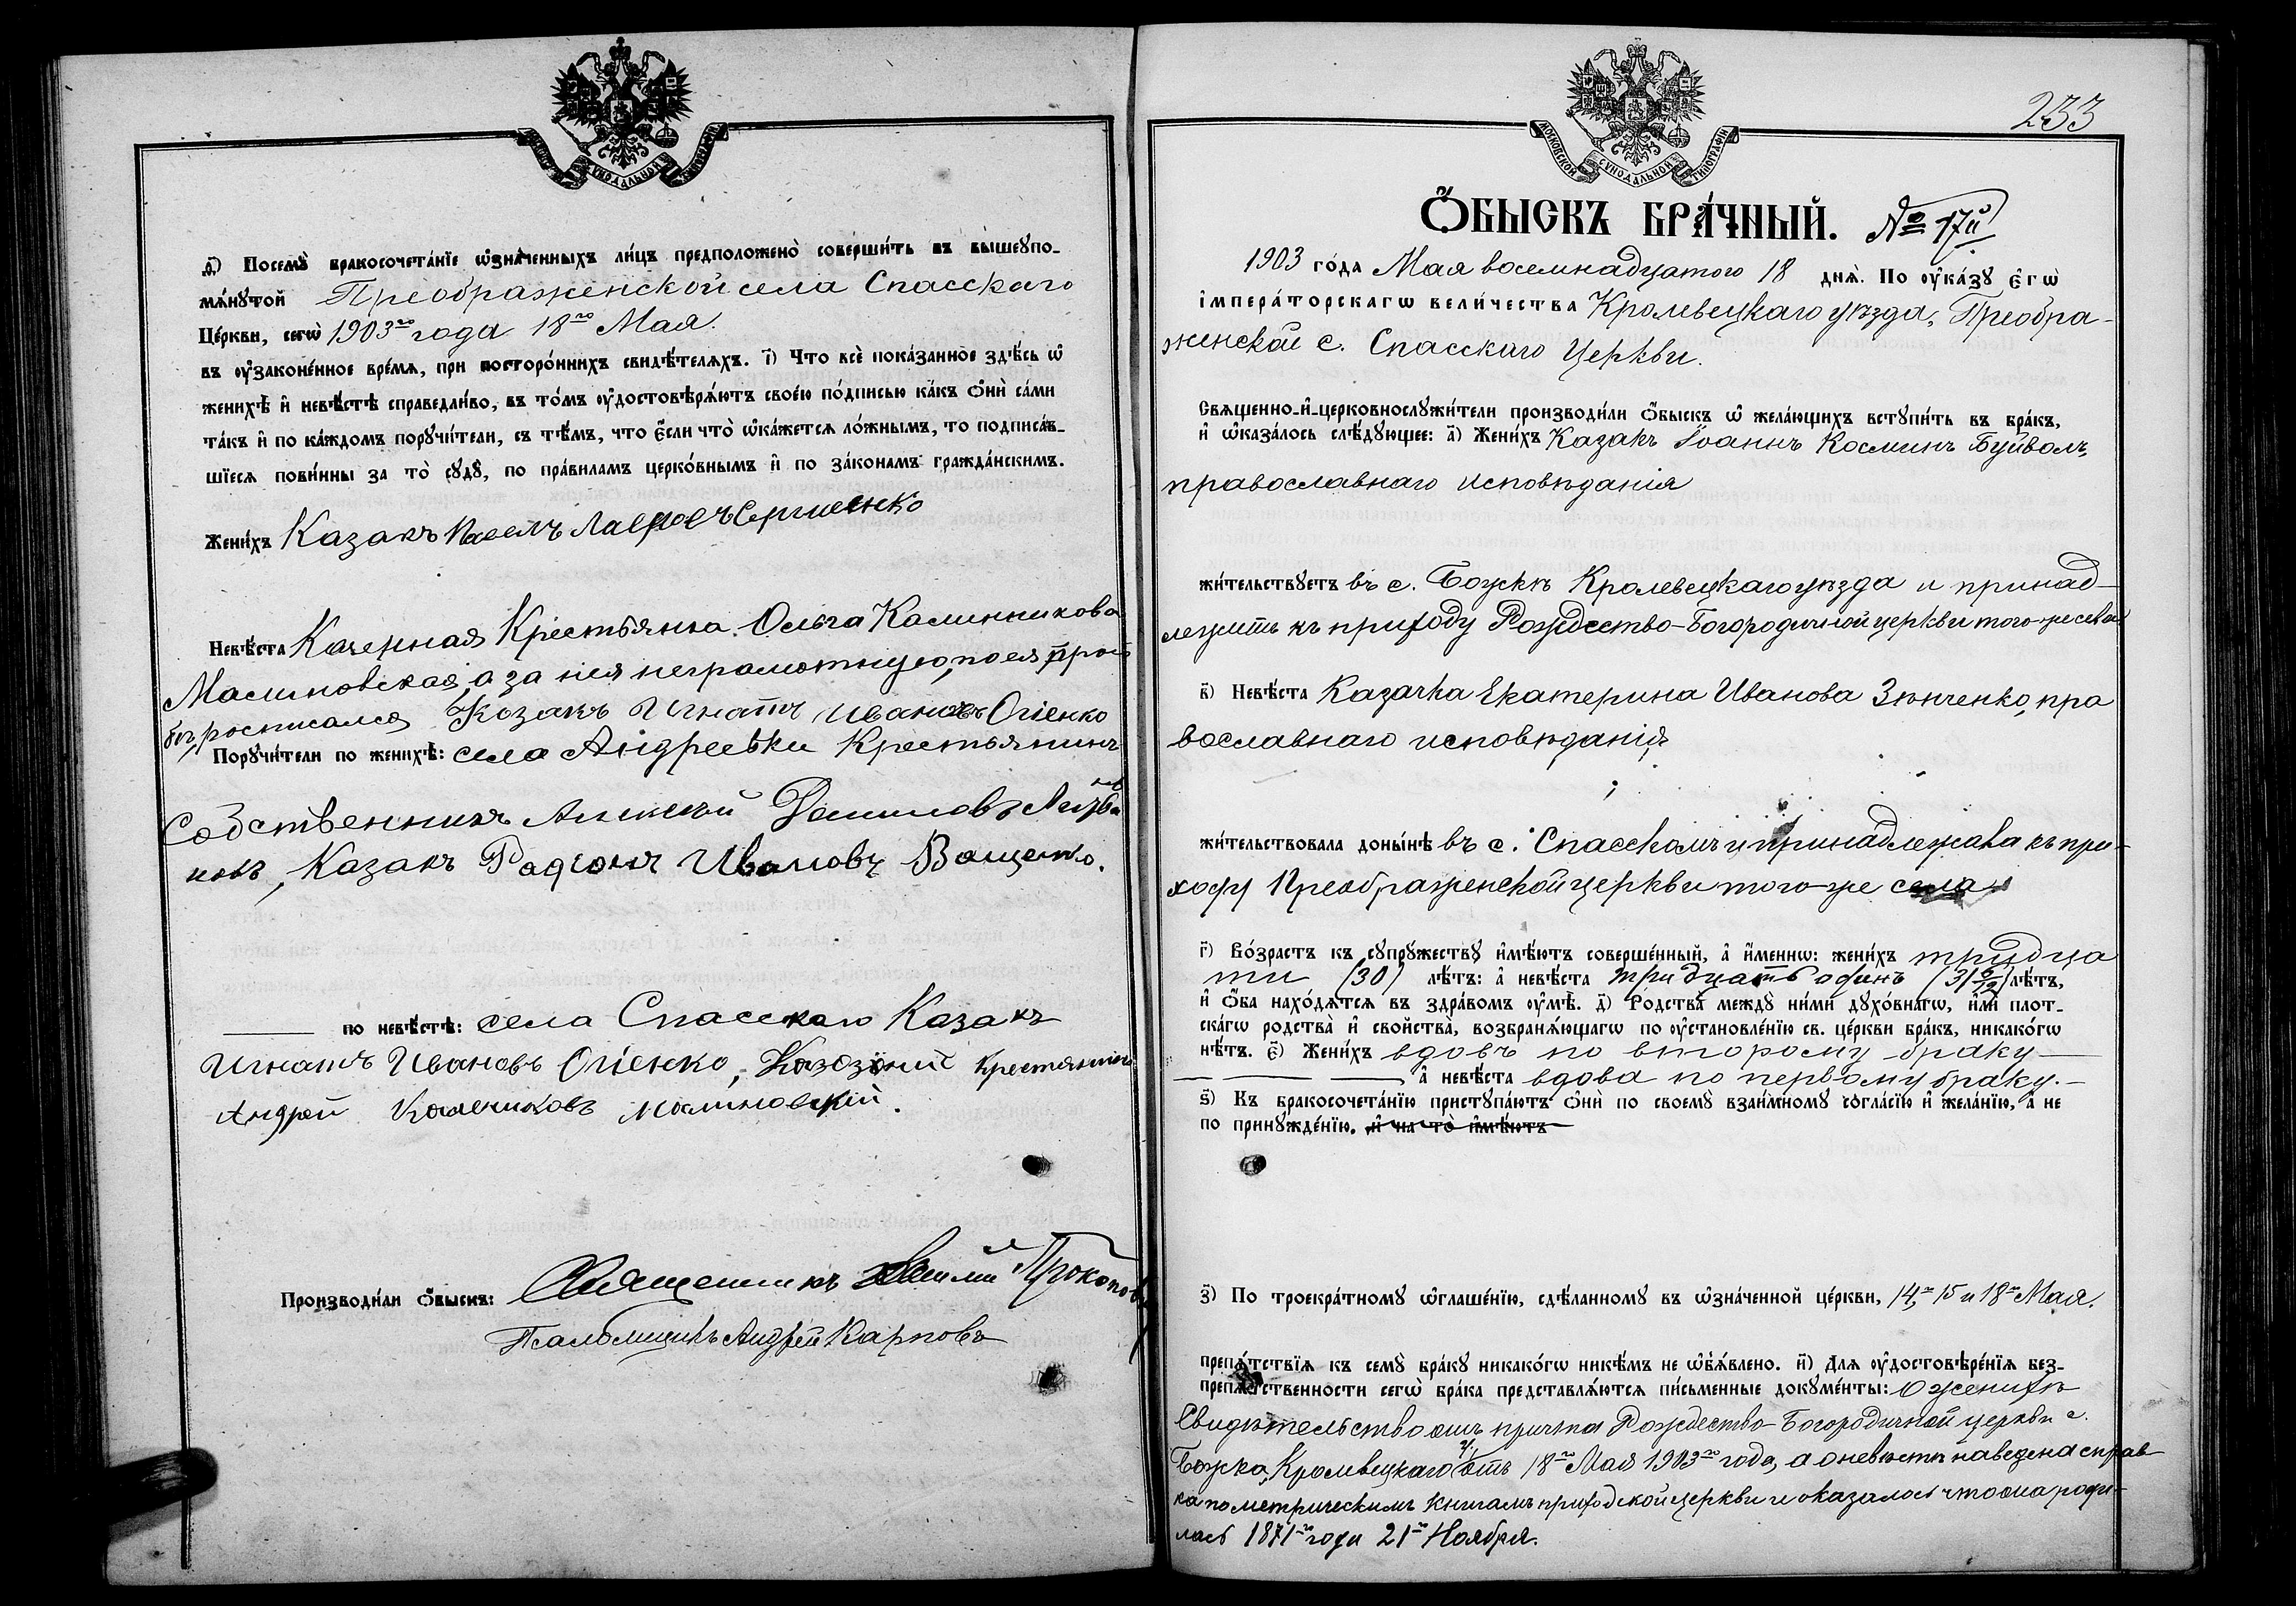 МОСКОВСКОЙ СѴНОДАЛЬНОЙ ТИПОГРАФІИ
ѳ҃) Посемꙋ̀ бракосочета́нїе ѡ҆зна́ченныхъ ли́цъ предположено̀ соверши́ть въ вышеꙋпо-
мѧ́нꙋтой Преображенской села Спасскаго
Це́ркви, сегѡ̀ 1903го года 18го Мая.
въ ᲂу҆законе́нное вре́мѧ, при посторо́ннихъ свидѣ́телѧхъ. і҃) Что̀ всѐ пока́занное здѣ́сь ѡ҆
женихѣ̀ и҆ невѣ́стѣ справедли́во, въ то́мъ ᲂу҆достовѣрѧ́ютъ свое́ю по́дписью ка́къ ѻ҆нѝ са́ми
та́къ и҆ по ка́ждомъ порꙋчи́тели, съ тѣ́мъ, что є҆́сли что̀ ѡ҆ка́жетсѧ ло́жнымъ, то подписа́в-
шїесѧ пови́нны за то̀ сꙋдꙋ̀, по пра́виламъ церко́внымъ и҆ по зако́намъ гражда́нскимъ.
Жени́хъ Казакъ Павелъ Лавровъ Сергиенко
Невѣ́ста Казенная Крестьянка Ольга Калинникова
Малиновская, а за нея неграмотную, по ея прось
бѣ, росписался Козакъ Игнатъ Ивановъ Огіенко
Порꙋчи́тели по женихѣ̀: села Андреевки Крестьянинъ
Собственникъ Алексѣй Даниловъ
новъ, Казакъ Радіонъ Ивановъ Ващенко.
по невѣ́стѣ: села Спасскаго Казакъ
Игнатъ Ивановъ Огіенко, Казеный крестянинъ
Андрей Калениковъ Малиновскій.
Производи́ли ѻ҆́быскъ: Священникъ Василій Прокопов
Псаломщикъ Андрей Карповъ
233
МОСКОВСКОЙ СѴНОДАЛЬНОЙ ТИПОГРАФІИ
Ѻ҆́БЫСКЪ БРА́ЧНЫЙ. № 17й
1903 го́да Мая восемнадцатого 18 днѧ̀. По ᲂу҆ка́зꙋ Є҆гѡ̀
і҆мпера́торскагѡ вели́чества Кролевецкаго уѣзда, Преобра-
женской с. Спасскаго Церкви.
Свѧще́нно-и҆-церковнослꙋжи́тели производи́ли ѻ҆́быскъ ѡ҆ жела́ющихъ встꙋпи́ть въ бра́къ,
и҆ ѡ҆каза́лось слѣ́дꙋющее: а҃) Жени́хъ Казакъ Іоаннъ Косминъ Буйволъ,
православнаго исповѣданія
жи́тельствꙋетъ въ с. Божкѣ Кролевецкаго уѣзда и принад-
лежитъ къ приходу Рождество-Богородичной церкви того-же села
в҃) Невѣ́ста Казачка Екатерина Иванова Зѣнченко, пра
вославнаго исповѣданія
жи́тельствовала доны́нѣ въ с. Спасскомъ и принадлежала къ при-
ходу Преображенской церкви того-же села
г҃) Во́зрастъ къ сꙋпрꙋ́жествꙋ и҆мѣ́ютъ соверше́нный, а҆ и҆́меннѡ: жени́хъ тридца
ти (30) лѣ́тъ: а҆ невѣ́ста тридцать одинъ (31 6/12) лѣ́тъ,
и҆ ѻ҆́ба нахо́дѧтсѧ въ здра́вомъ ᲂу҆мѣ̀. д҃) Родства̀ междꙋ̀ ни́ми дꙋхо́внагѡ, и҆лѝ плот-
ска́гѡ родства̀ и҆ свойства̀, возбранѧ́ющагѡ по ᲂу҆становле́нїю св. це́ркви бра́къ, никако́гѡ
нѣ́тъ. є҃) Жени́хъ вдовъ по второму браку
а҆ невѣ́ста вдова по первому браку.
ѕ҃) Къ бракосочета́нїю пристꙋпа́ютъ ѻ҆нѝ по своемꙋ̀ взаи́мномꙋ согла́сїю и҆ жела́нїю, а҆ не
по принꙋжде́нїю. и҆ на то̀ и҆мѣ́ютъ
з҃) По троекра́тномꙋ ѡ҆глаше́нїю, сдѣ́ланномꙋ въ ѡ҆зна́ченной це́ркви, 14го, 15 и 18го Мая.
препѧ́тствїѧ къ семꙋ̀ бра́кꙋ никако́гѡ никѣ́мъ не ѡ҆б̾ѧ́влено. и҃) Длѧ ᲂу҆достовѣре́нїѧ без-
препѧ́тственности сегѡ̀ бра́ка представлѧ́ютсѧ пи́сьменные докꙋме́нты: О женихѣ
Свидѣтельство отъ причта Рождество-Богородичной церкви с.
Божка, Кролевецкаго у. отъ 18го Мая 1903го года, а о невѣстѣ наведена справ-
ка по метрическимъ книгамъ приходской церкви и оказалось что она роди-
лась 1871го года 21го Ноября.